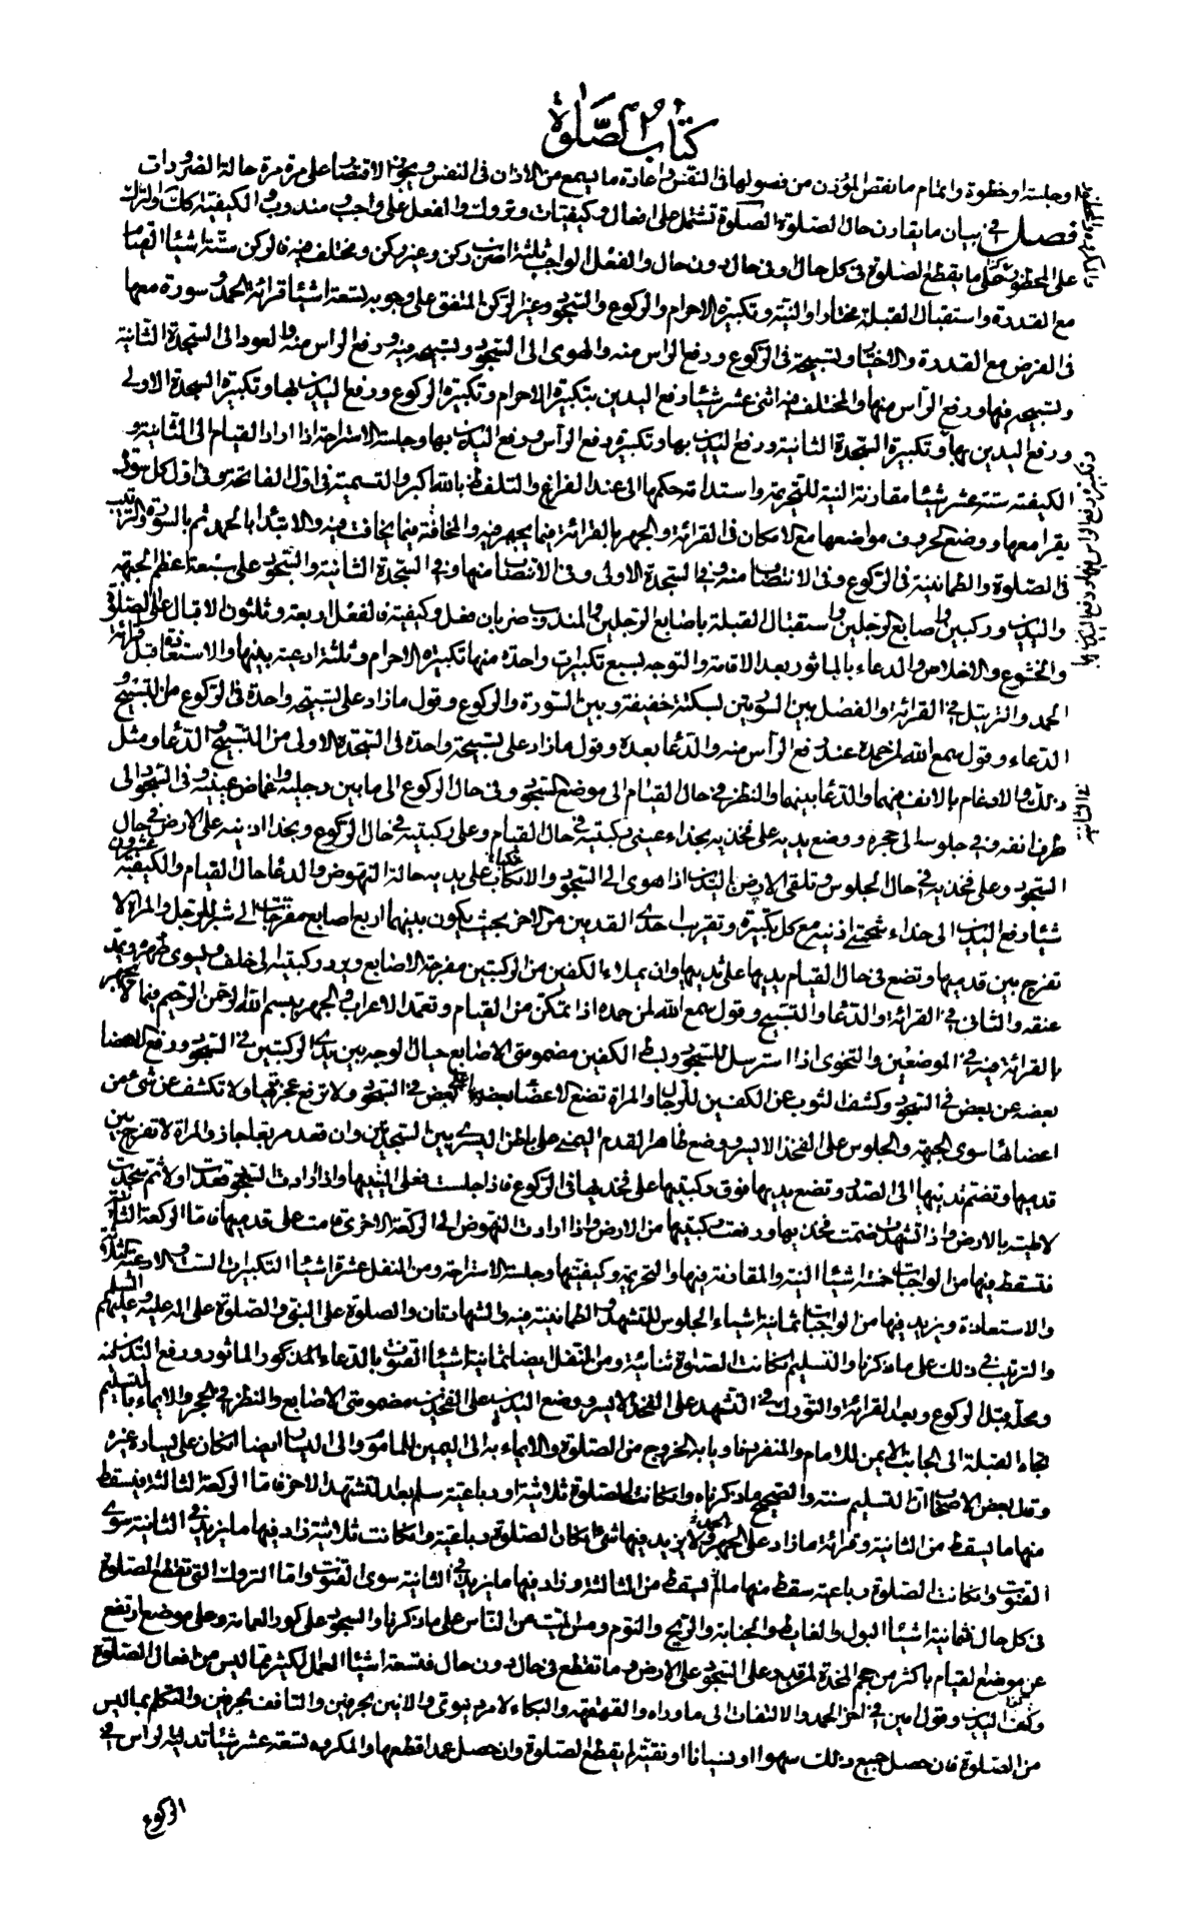 كتاب الصلوة
او جلسة او خطوة واتمام ما نقص المؤذن من فصولها في النفس واعادة ما يسمع من الاذان في النفس ويجوز الاقتصار على مرة مرة حالة الضرورات
فصل في بيان ما يقارن حال الصلوة الصلوة تشتمل على افعال وكيفيات وتروك والفعل على واجب ومندوب والكيفية كذلك والتروك
على المحظور على ما يقطع الصلوة في كل حال وفي حال دون حال والفعل الواجب ثلثة اضرب ركن وغير ركن ومختلف فيه فالركن ستة اشياء القيام
مع القدرة واستقبال القبلة مختارا والنية وتكبيرة الاحرام والركوع والسجود وغير الركن المتفق على وجوبه بتسعة اشياء قرائة الحمد وسورة معها
في الفرض مع القدرة والاختيار وتسبيحة في الركوع ورفع الراس منه والهوى الى السجود وتسبيحة فيه ورفع الراس منه والعود الى السجدة الثانية
وتسبيحه فيها ورفع الراس منها والمختلف فيه اثنى عشر شيئا رفع اليدين بتكبيرة الاحرام وتكبيرة الركوع ورفع اليدين بها وتكبيرة السجدة الاولى
ورفع اليدين بها وتكبيرة السجدة الثانية ورفع اليدين بها وتكبيرة رفع الراس ورفع اليدين بها وجلسة الاستراحة اذا اراد القيام الى الثانية و
الكيفية ستة عشر شيئا مقارنة النية للتحريمة واستدامة حكمها الى عند الفراغ والتلفظ بالله اكبر والتسمية في اول الفاتحة وفي اول كل سورة
يقرا معها ووضع الحروف مواضعها مع الامكان في القرائة والجهر بالقرائة فيما يجهر فيه والمخافتة فيما يخافت فيه والابتداء بالحمد ثم بالسورة والترتيب
في الصلوة والطمانينة في الركوع وفي الانتصاب منه وفي السجدة الاولى وفي الانتصاب منها وفي السجدة الثانية والسجود على سبعة اعظم الجبهة
واليدين وركبتين واصابع الرجلين واستقبال القبلة باصابع الرجلين والمندوب ضربان فعل وكيفية فالفعل اربعة وثلثون الاقبال على الصلوة
والخشوع والاخلاص والدعاء بالماثور بعد الاقامة والتوجه بسبع تكبيرات واحدة منها تكبيرة الاحرام وثلثة ادعية بينها والاستعاذة قبل قرائة
الحمد والترتيل في القرائة والفصل بين السورتين بسكتة خفيفة وبين السورة والركوع وقول ما زاد على تسبيحة واحدة في الركوع من التسبيح و
الدعاء وقول سمع الله لمن حمده عند رفع الراس منه والدعاء بعده وقول ما زاد على تسبيحة واحدة في السجدة الاولى من التسبيح والدعاء ومثل
ذلك في الثانية والارغام بالانف فيهما والدعاء بينهما والنظر في حال القيام الى موضع السجود وفي حال الركوع الى ما بين رجليه واغماض عينيه وفي السجود الى
طرف انفه وفي جلوسه الى حجره ووضع يديه على فخذيه بحذاء عيني ركبتيه في حال القيام وعلى ركبتيه في حال الركوع وبحذا اذنيه على الارض في حال
السجود وعلى فخذيه في حال الجلوس وتلقى الارض باليدين اذا هوى الى السجود والاتكاء على يديه حالة النهوض والدعاء حال القيام والكيفية عشرون
شيئا رفع اليدين الى حذاء شحمتي اذنيه مع كل تكبيرة وتقريب احدى القدمين من الاخرى بحيث يكون بينهما اربع اصابع مفرجات الى شبر للرجل والمراة لا
تفرج بين قدميها وتضع في حال القيام يديها على ثدييها وان يملاء الكفين من الركبتين مفرجة الاصابع ويرد ركبتيه الى خلف ويسوى ظهره ويمد
عنقه والتانى في القرائة والدعاء والتسبيح وقول سمع الله لمن حمده اذا تمكن من القيام وتعمد الاعراب والجهر ببسم الله الرحمن الرحيم فيما لا يجهر
بالقرائة فيه في الموضعين والتخوى اذا استرسل للسجود وبسط الكفين مضمومتي الاصابع حيال الوجه بين يدي الركبتين في السجود ورفع الاعضا
بعضه عن بعض في السجود وكشف الثوب عن الكفين للرجال والمراة تضع الاعضاء بعضها على بعض في السجود ولا ترفع عجيزتها ولا تكشف عن شئ من
اعضائها سوى الجبهة والجلوس على الفخذ الايسر ووضع ظاهر القدم اليمنى على باطن اليسرى بين السجدتين وان قعد مربعا جاز والمراة لا تفرج بين
قدميها وتضم ثدييها الى الصدر وتضع يديها فوق ركبتيها على فخذيها في الركوع فاذا جلست فعلى اليتيها واذا ارادت السجود قعدت اولا ثم سجدت
لاطية بالارض واذا تشهدت ضمت فخذيها ورفعت ركبتيها من الارض واذا ارادت النهوض الى الركعة الاخرى قامت على قدميها فاما الركعة الثانية
فتسقط فيها من الواجبات خمسة اشياء النية والمقارنة فيها والتحريمة وكيفيتها وجلسة الاستراحة ومن النفل عشرة اشياء التكبيرات الست والادعية الثلاثة
والاستعاذة ويزيد فيها من الواجبات ثمانية اشياء الجلوس للتشهد والطمانينة فيه والشهادتان والصلوة على النبي والصلوة على اله عليه وعليهم السلم
والترتيب في ذلك على ما ذكرنا والتسليم ان كانت الصلوة ثنائية ومن النفل ايضا ثمانية اشياء القنوت بالدعاء المذكور الماثور ورفع اليدين به
ومحله قبل الركوع وبعد القرائة والتورك في التشهد على الفخذ الايسر ووضع اليدين على الفخذين مضمومتي الاصابع والنظر في الحجر والايماء بالتسليم
تجاه القبلة الى الجانب الايمن للامام والمنفرد ناويا به الخروج من الصلوة والايماء به الى اليمين للماموم والى اليسار ايضا ان كان على يساره غيره
وقال بعض الاصحاب ان التسليم سنة والصحيح ما ذكرناه وان كانت الصلوة ثلاثية او رباعية سلم بعد التشهد الاخر فاما الركعة الثالثة فيسقط
منها ما يسقط من الثانية وقرائة ما زاد على الحمد والجهر ولا يزيد فيها شئ ان كان الصلوة رباعية وان كانت ثلاثية زاد فيها ما يزيد في الثانية سوى
القنوت وان كانت الصلوة رباعية سقط منها ما لم يسقط من الثالثة وزاد فيها ما يزيد في الثانية سوى القنوت واما التروك التي تقطع الصلوة
في كل حال فثمانية اشياء البول والغايط والجنابة والريح والنوم ومس الميت من الناس على ما ذكرنا والسجود على كور العمامة وعلى موضع ارتفع
عن موضع القيام باكثر من حجم المخدة لمن قدر على السجود على الارض وما تقطع في حال دون حال فتسعة اشياء العمل الكثير مما ليس من افعال الصلوة
وكتف اليدين وقول امين في اخر الحمد والالتفات الى ما وراه والقهقهة والبكاء لامر دنيوى والانين بحرفين والتافف بحرفين والتكلم بما ليس
من الصلوة فان حصل جميع ذلك سهوا او نسيانا او تقية لم يقطع الصلوة وان حصل عمدا قطعها والمكروه تسعة عشر شيئا تدلية الراس في
الركوع